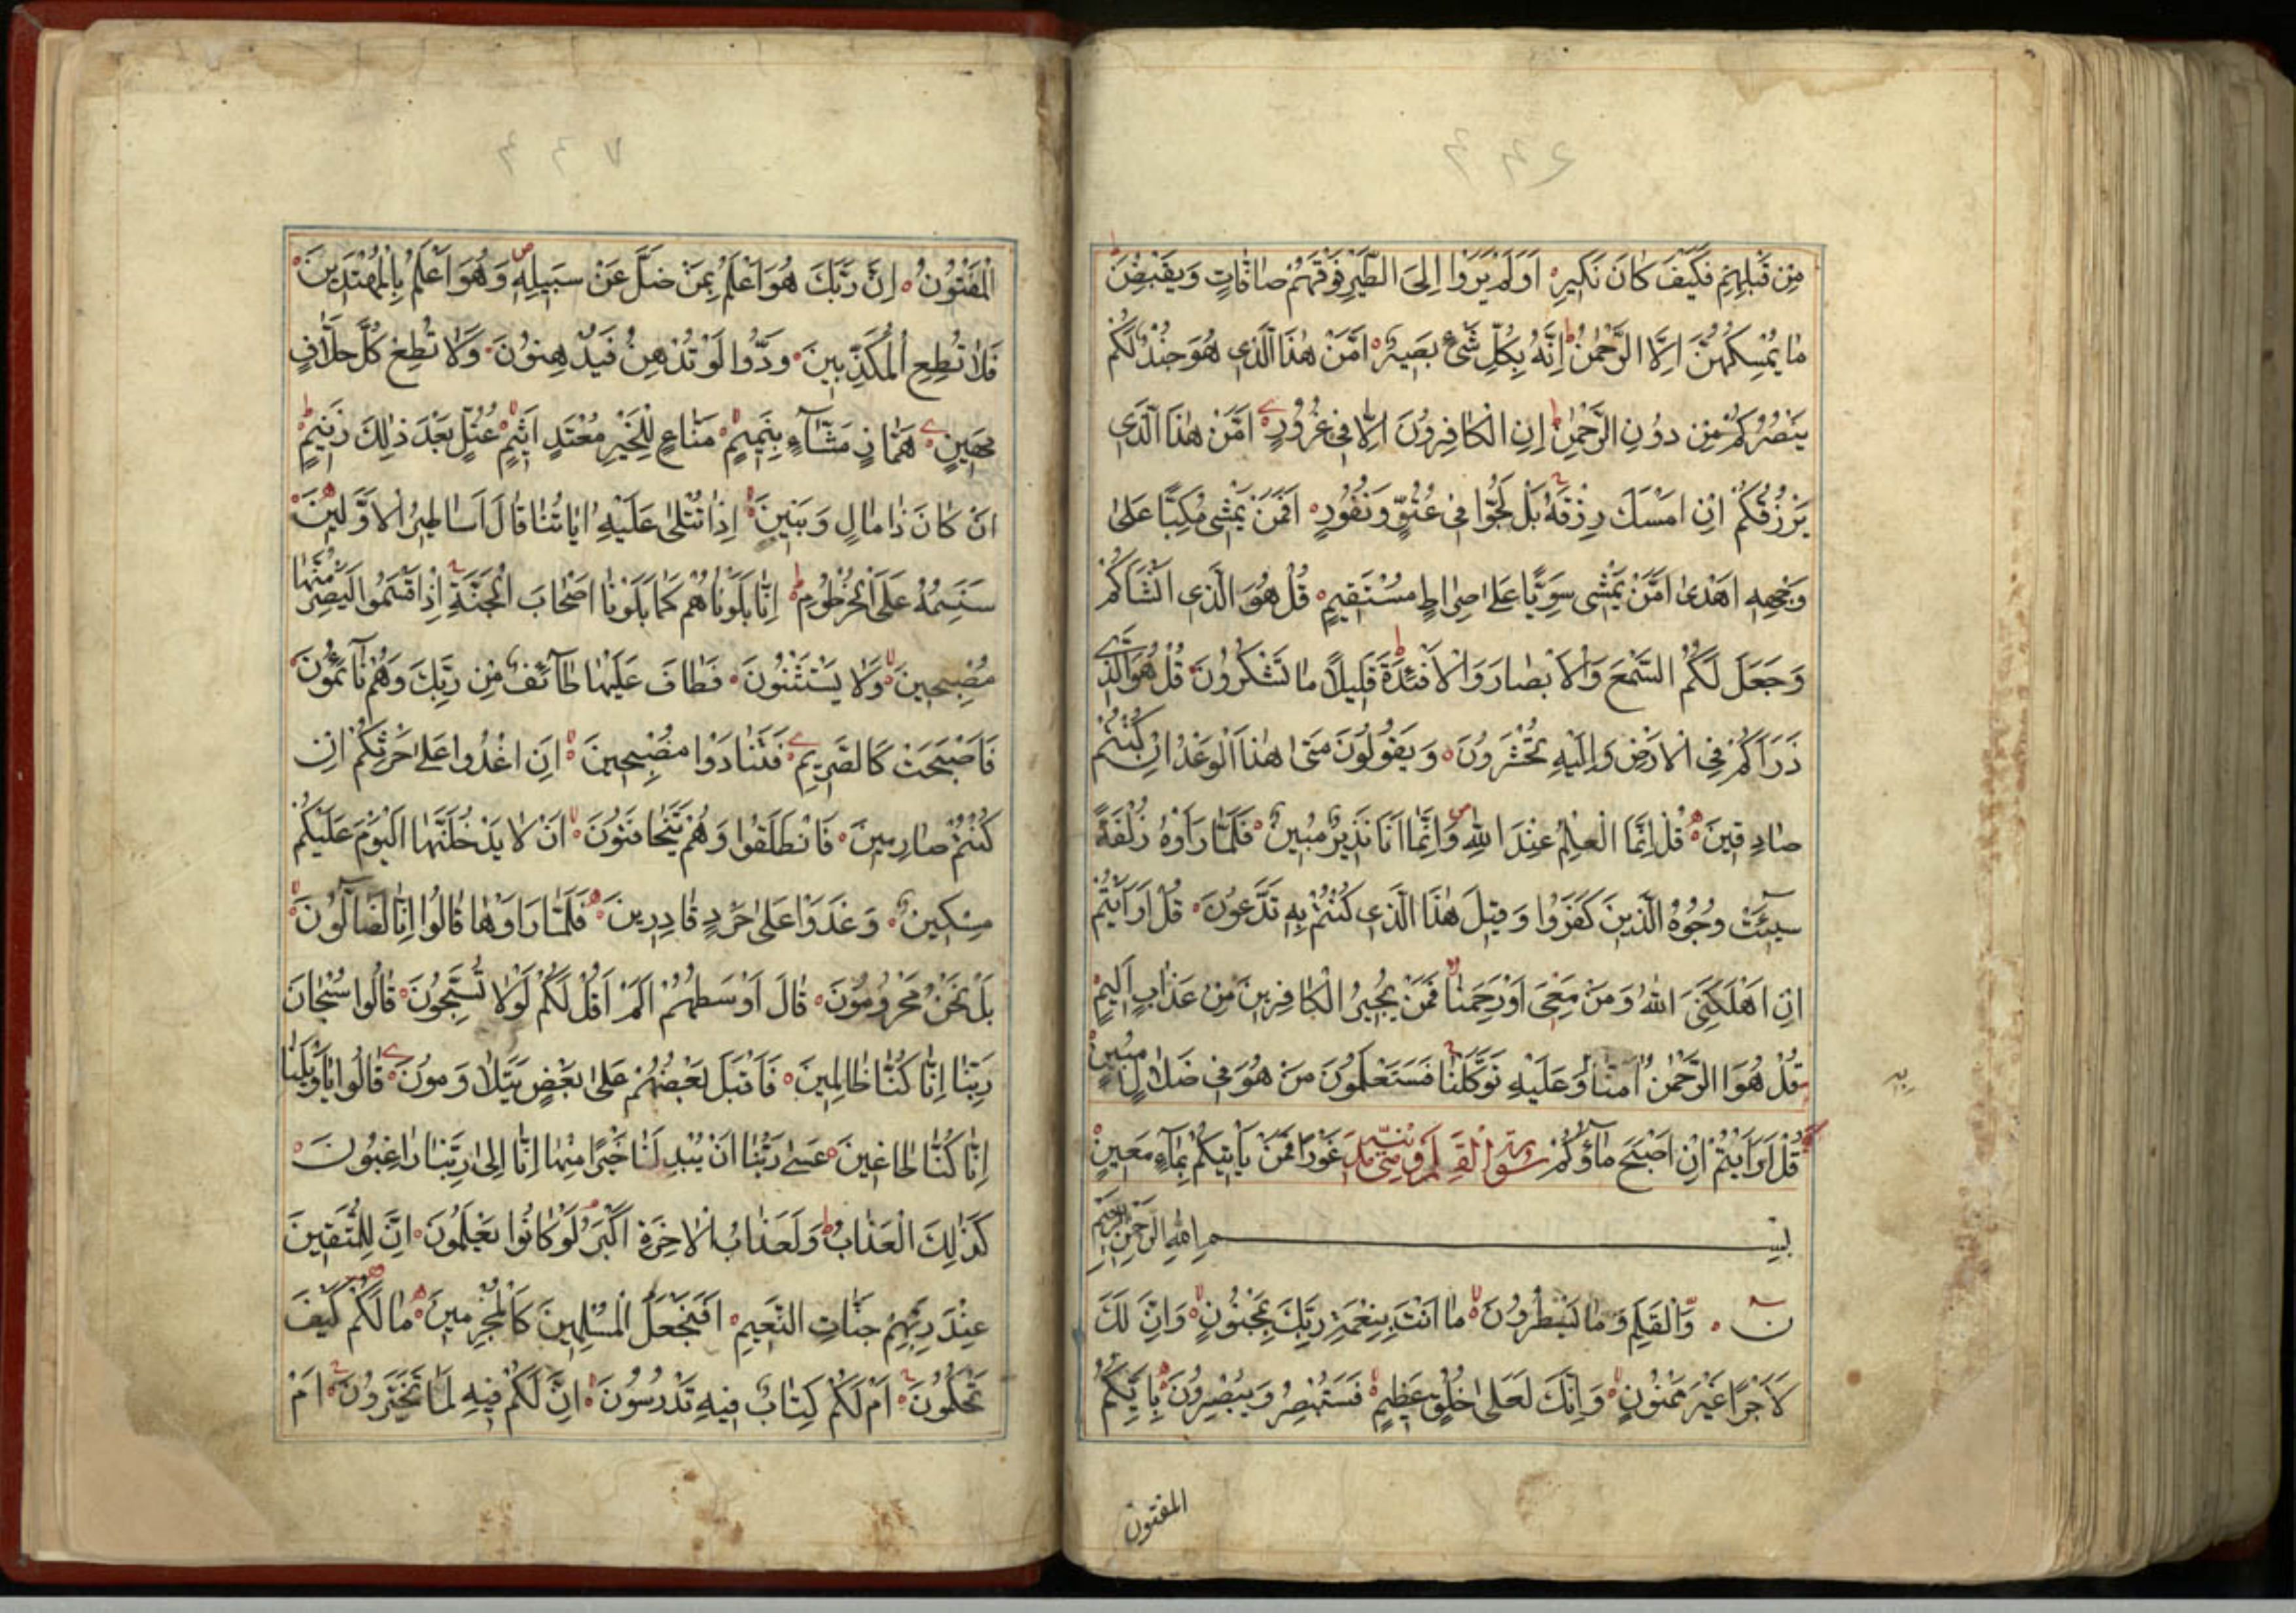 ۴۴۶
مِنْ قَبْلِهِمْ فَكَيْفَ كَانَ نَكِيرِ اَوَلَمْ يَرَوْا اِلَى الطَّيْرِ فَوْقَهُمْ صَافَّاتٍ وَيَقْبِضْنَ
مَا يُمْسِكُهُنَّ اِلَّا الرَّحْمٰنُ اِنَّهُ بِكُلِّ شَىْءٍ بَصِيرٌ اَمَّنْ هٰذَا الَّذِى هُوَ جُنْدٌ لَكُمْ
يَنْصُرُكُمْ مِنْ دُونِ الرَّحْمٰنِ اِنِ الْكَافِرُونَ اِلَّا فِى غُرُورٍ اَمَّنْ هٰذَا الَّذِى
يَرْزُقُكُمْ اِنْ اَمْسَكَ رِزْقَهُ بَلْ لَجُّوا فِى عُتُوٍّ وَنُفُورٍ اَفَمَنْ يَمْشِى مُكِبًّا عَلٰى
وَجْهِهِ اَهْدٰى اَمَّنْ يَمْشِى سَوِيًّا عَلٰى صِرَاطٍ مُسْتَقِيمٍ قُلْ هُوَ الَّذِى اَنْشَاَكُمْ
وَجَعَلَ لَكُمُ السَّمْعَ وَالْاَبْصَارَ وَالْاَفْئِدَةَ قَلِيلًا مَا تَشْكُرُونَ قُلْ هُوَ الَّذِى
ذَرَاَكُمْ فِى الْاَرْضِ وَاِلَيْهِ تُحْشَرُونَ وَيَقُولُونَ مَتٰى هٰذَا الْوَعْدُ اِنْ كُنْتُمْ
صَادِقِينَ قُلْ اِنَّمَا الْعِلْمُ عِنْدَ اللّٰهِ وَاِنَّمَا اَنَا نَذِيرٌ مُبِينٌ فَلَمَّا رَاَوْهُ زُلْفَةً
سِيئَتْ وُجُوهُ الَّذِينَ كَفَرُوا وَقِيلَ هٰذَا الَّذِى كُنْتُمْ بِهِ تَدَّعُونَ قُلْ اَرَاَيْتُمْ
اِنْ اَهْلَكَنِىَ اللّٰهُ وَمَنْ مَعِىَ اَوْ رَحِمَنَا فَمَنْ يُجِيرُ الْكَافِرِينَ مِنْ عَذَابٍ اَلِيمٍ
قُلْ هُوَ الرَّحْمٰنُ اٰمَنَّا وَعَلَيْهِ تَوَكَّلْنَا فَسَتَعْلَمُونَ مَنْ هُوَ فِى ضَلَالٍ مُبِينٍ
قُلْ اَرَاَيْتُمْ اِنْ اَصْبَحَ مَآؤُكُمْ سورة القلم غَوْرًا فَمَنْ يَاْتِيكُمْ بِمَآءٍ مَعِينٍ
بِسْمِ اللّٰهِ الرَّحْمٰنِ الرَّحِيمِ
نٓ وَالْقَلَمِ وَمَا يَسْطُرُونَ مَا اَنْتَ بِنِعْمَةِ رَبِّكَ بِمَجْنُونٍ وَاِنَّ لَكَ
لَاَجْرًا غَيْرَ مَمْنُونٍ وَاِنَّكَ لَعَلٰى خُلُقٍ عَظِيمٍ فَسَتُبْصِرُ وَيُبْصِرُونَ بِاَيِّكُمُ
المفتون
۴۴۷
الْمَفْتُونُ اِنَّ رَبَّكَ هُوَ اَعْلَمُ بِمَنْ ضَلَّ عَنْ سَبِيلِهِ وَهُوَ اَعْلَمُ بِالْمُهْتَدِينَ
فَلَا تُطِعِ الْمُكَذِّبِينَ وَدُّوا لَوْ تُدْهِنُ فَيُدْهِنُونَ وَلَا تُطِعْ كُلَّ حَلَّافٍ
مَهِينٍ هَمَّازٍ مَشَّآءٍ بِنَمِيمٍ مَنَّاعٍ لِلْخَيْرِ مُعْتَدٍ اَثِيمٍ عُتُلٍّ بَعْدَ ذٰلِكَ زَنِيمٍ
اَنْ كَانَ ذَا مَالٍ وَبَنِينَ اِذَا تُتْلٰى عَلَيْهِ اٰيَاتُنَا قَالَ اَسَاطِيرُ الْاَوَّلِينَ
سَنَسِمُهُ عَلَى الْخُرْطُومِ اِنَّا بَلَوْنَاهُمْ كَمَا بَلَوْنَا اَصْحَابَ الْجَنَّةِ اِذْ اَقْسَمُوا لَيَصْرِمُنَّهَا
مُصْبِحِينَ وَلَا يَسْتَثْنُونَ فَطَافَ عَلَيْهَا طَآئِفٌ مِنْ رَبِّكَ وَهُمْ نَآئِمُونَ
فَاَصْبَحَتْ كَالصَّرِيمِ فَتَنَادَوْا مُصْبِحِينَ اَنِ اغْدُوا عَلٰى حَرْثِكُمْ اِنْ
كُنْتُمْ صَارِمِينَ فَانْطَلَقُوا وَهُمْ يَتَخَافَتُونَ اَنْ لَا يَدْخُلَنَّهَا الْيَوْمَ عَلَيْكُمْ
مِسْكِينٌ وَغَدَوْا عَلٰى حَرْدٍ قَادِرِينَ فَلَمَّا رَاَوْهَا قَالُوا اِنَّا لَضَآلُّونَ
بَلْ نَحْنُ مَحْرُومُونَ قَالَ اَوْسَطُهُمْ اَلَمْ اَقُلْ لَكُمْ لَوْلَا تُسَبِّحُونَ قَالُوا سُبْحَانَ
رَبِّنَا اِنَّا كُنَّا ظَالِمِينَ فَاَقْبَلَ بَعْضُهُمْ عَلٰى بَعْضٍ يَتَلَاوَمُونَ قَالُوا يَا وَيْلَنَا
اِنَّا كُنَّا طَاغِينَ عَسٰى رَبُّنَا اَنْ يُبْدِلَنَا خَيْرًا مِنْهَا اِنَّا اِلٰى رَبِّنَا رَاغِبُونَ
كَذٰلِكَ الْعَذَابُ وَلَعَذَابُ الْاٰخِرَةِ اَكْبَرُ لَوْ كَانُوا يَعْلَمُونَ اِنَّ لِلْمُتَّقِينَ
عِنْدَ رَبِّهِمْ جَنَّاتِ النَّعِيمِ اَفَنَجْعَلُ الْمُسْلِمِينَ كَالْمُجْرِمِينَ مَا لَكُمْ كَيْفَ
تَحْكُمُونَ اَمْ لَكُمْ كِتَابٌ فِيهِ تَدْرُسُونَ اِنَّ لَكُمْ فِيهِ لَمَا تَخَيَّرُونَ اَمْ